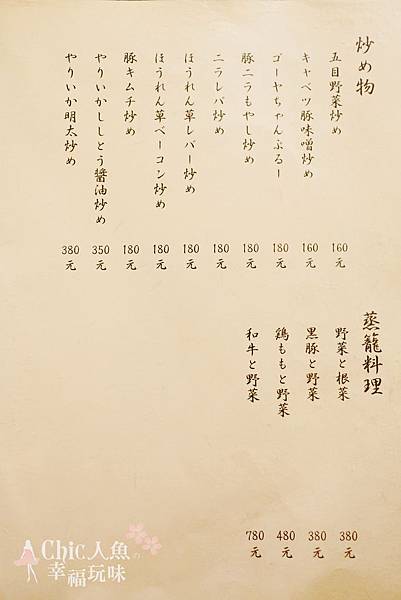 炒め物
五目野菜炒め 160元
キャベツ豚味噌炒め 160元
ゴーヤちゃんぷるー 180元
豚ニラもやし炒め 180元
ニラレバ炒め 180元
ほうれん草レバー炒め 180元
ほうれん草ベーコン炒め 180元
豚キムチ炒め 180元
やりいかししとう醤油炒め 350元
やりいか明太炒め 380元
蒸籠料理
野菜と根菜 380元
黒豚と野菜 380元
鶏ももと野菜 480元
和牛と野菜 780元
Chic人魚の
幸福玩味